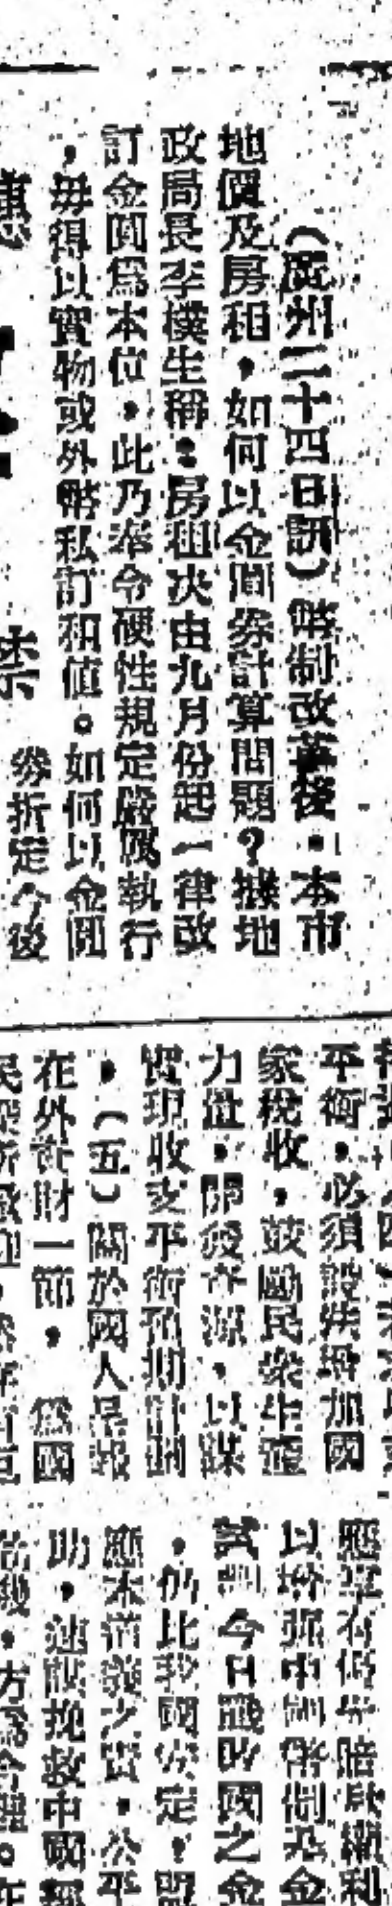 （廣州二十四日訊）幣制改革後，本市
地價及房租，如何以金圓券計算問題？據地
政局長李樸生稱：房租决由九月份起一律改
訂金圓爲本位，此乃奉令硬性規定嚴厲執行
，毋得以實物或外幣私訂租値。如何以金圓
券折定今後
平衡，必須設法增加國
家稅收，鼓勵民衆生產
力量，開發資源，以謀
實現收支平衡預期計劃
，（五）關於國人呈報
在外資財一節，爲國
應享有
以增强中國幣制基金
試問今日戰敗國之金
，仍比我國安定，盟
應本道義之責，公平
助，速謀挽救中國經
方爲合理。在